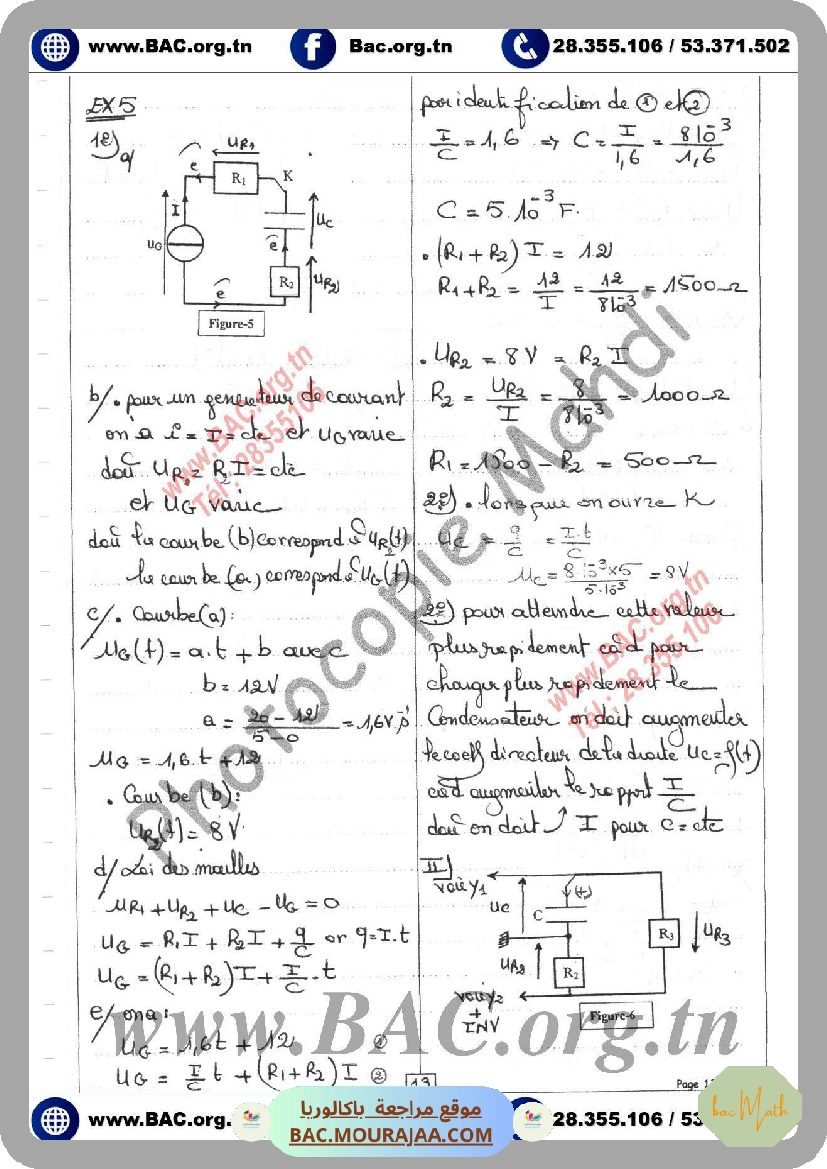 www.BAC.org.tn
Bac.org.tn
28.355.106 / 53.371.502
EX 5
1°)
a/
UR1
e
R1
K
I
UC
UG
e
R2
UR2
e
Figure-5
b/. pour un generateur de courant
on a i = I = cte et UG varie
d'où UR2 = R2 I = cte
et UG varie
d'où la courbe (b) correspond à UR2(t)
la courbe (a) correspond à UG(t)
c/. Courbe (a) :
UG(t) = a.t + b avec
b = 12V
a = (20 - 12)/(5 - 0) = 1,6 V.s⁻¹
UG = 1,6.t + 12
. Courbe (b) :
UR2(t) = 8 V
d/ Loi des mailles
UR1 + UR2 + UC - UG = 0
UG = R1 I + R2 I + q/C or q = I.t
UG = (R1 + R2) I + I/C . t
e/ on a :
UG = 1,6t + 12 ①
UG = I/C t + (R1 + R2) I ②
13
par identification de ① et ②
I/C = 1,6 => C = I/1,6 = 8 10⁻³/1,6
C = 5.10⁻³ F.
. (R1 + R2) I = 12
R1 + R2 = 12/I = 12/8 10⁻³ = 1500 Ω
. UR2 = 8 V = R2 I
R2 = UR2/I = 8/8 10⁻³ = 1000 Ω
R1 = 1500 - R2 = 500 Ω
2°) . lorsque on ouvre K
UC = q/C = I.t/C
UC = 8 10⁻³ x 5/5.10⁻³ = 8V
2°) pour atteindre cette valeur
plus rapidement càd pour
charger plus rapidement le
Condensateur on doit augmenter
le coeff directeur de la droite UC = f(t)
càd augmenter le rapport I/C
d'où on doit ↗ I pour C = cte
II)
voie Y1
(+)
UC
C
R3
UR3
UR2
R2
voie Y2
+
INV
Figure-6
Page 1
Photocopie Mahdi
www.BAC.org.tn
Tél : 28355106
www.BAC.org.tn
Tél : 28.355.106
www.BAC.org.tn
www.BAC.org.
موقع مراجعة باكالوريا
BAC.MOURAJAA.COM
28.355.106 / 53
bac Math